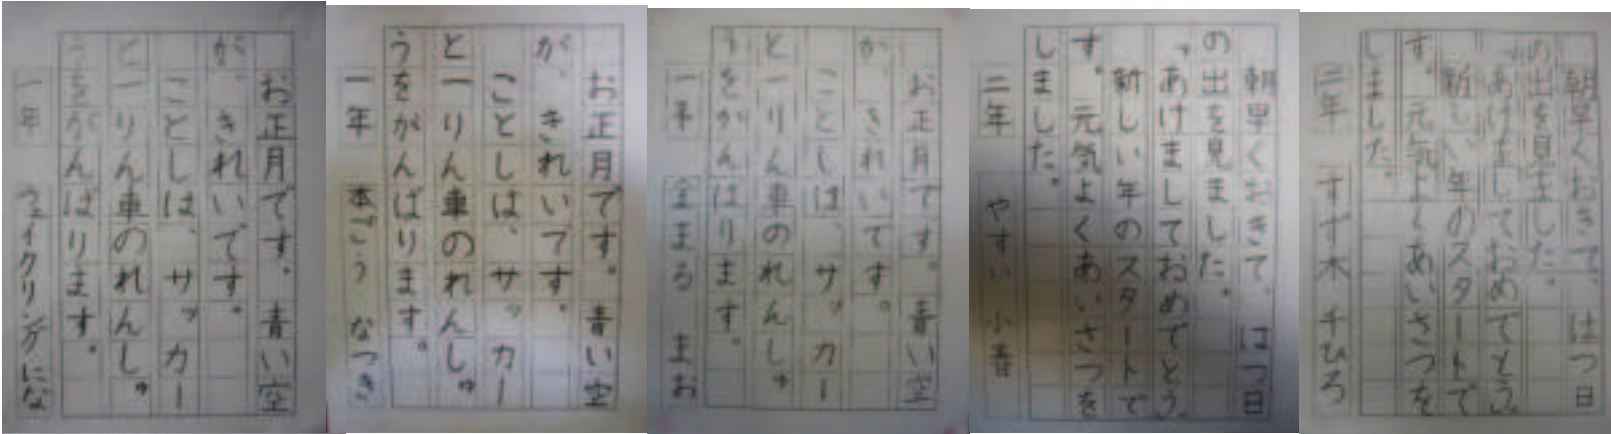 お正月です。青い空
が、きれいです。
ことしは、サッカー
と一りん車のれんしゅ
うをがんばります。
一年 ウェイクリングにな
お正月です。青い空
が、きれいです。
ことしは、サッカー
と一りん車のれんしゅ
うをがんばります。
一年 本ごう なつき
お正月です。青い空
が、きれいです。
ことしは、サッカー
と一りん車のれんしゅ
うをがんばります。
一年 金まる まお
朝早くおきて、はつ日
の出を見ました。
「あけましておめでとう」
新しい年のスタートで
す。元気よくあいさつを
しました。
二年 やすい 小春
朝早くおきて、はつ日
の出を見ました。
「あけましておめでとう」
新しい年のスタートで
す。元気よくあいさつを
しました。
二年 すず木 千ひろ